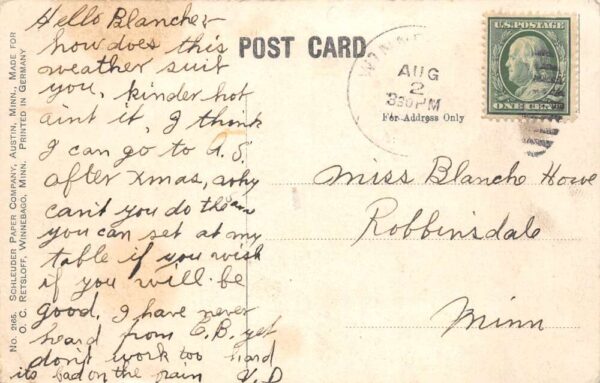 Hello Blanche
how does this
weather suit
you, kinder hot
aint it, I think
I can go to A. S.
after Xmas, why
can't you do the
you can set at my
table if you wish
if you will be
good. I have never
heard from C.B. yet
don't work too hard
its bad on the pain V.D
POST CARD
For Address Only
WINNE
AUG
2
330PM
U.S. POSTAGE
ONE CENT
Miss Blanche Howe
Robbinsdale
Minn
No. 2165. SCHLEUDER PAPER COMPANY, AUSTIN, MINN., MADE FOR
O. C. RETSLOFF, WINNEBAGO, MINN. PRINTED IN GERMANY